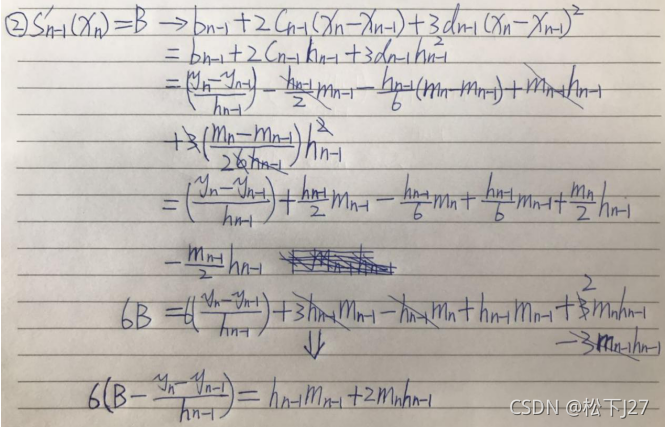 ②S'n-1(xn)=B → bn-1+2Cn-1(xn-xn-1)+3dn-1(xn-xn-1)²
= bn-1+2Cn-1hn-1+3dn-1hn-1²
=(yn-yn-1/hn-1) - hn-1/2 mn-1 - hn-1/6 (mn-mn-1) + mn-1hn-1
+3(mn-mn-1/6hn-1)h²n-1
=(yn-yn-1/hn-1) + hn-1/2 mn-1 - hn-1/6 mn + hn-1/6 mn-1 + mn/2 hn-1
- mn-1/2 hn-1
6B =6(yn-yn-1/hn-1) +3hn-1mn-1 - hn-1mn + hn-1mn-1 + 3 2 mnhn-1
-3mn-1hn-1
⇓
6(B - yn-yn-1/hn-1) = hn-1mn-1+2mnhn-1
CSDN @松下J27